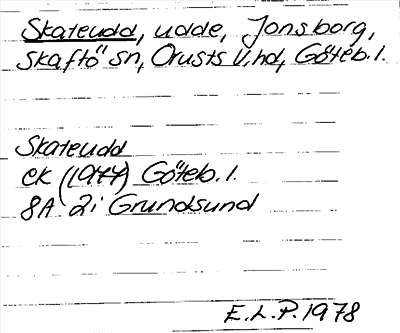 Skateudd, udde, Jonsborg,
Skaftö sn, Orusts V.hd, Göteb.l.
Skateudd
ek (1944) Göteb.l.
8A 2i Grundsund
E.L.P. 1978